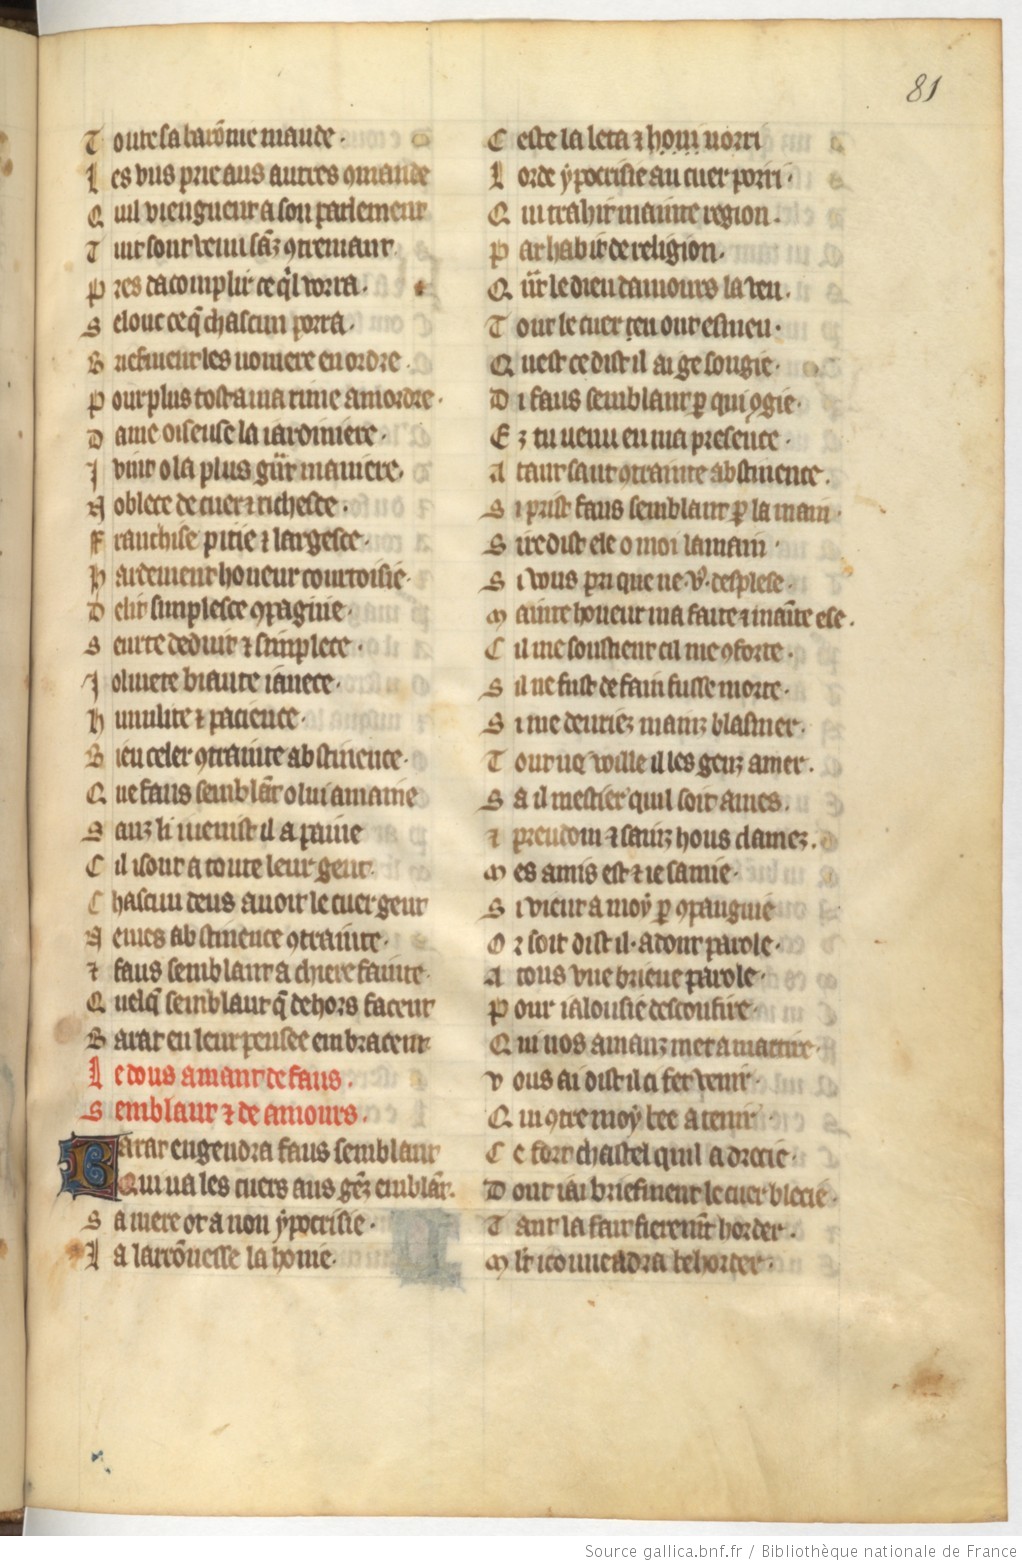 81
Toute sa barōnie mande.
Les vns prie aus autres ꝯmande
Quil viengnent a son parlement
Tuit sont venu sāz ꝯtremant
Pres dacomplir ce q̄l vorra.
Selonc ce q̄ chascun porra.
Briefment les nomere en ordre.
Pour plus tost a ma rime amordre.
Dame oiseuse la iardiniere.
I vint o la plus gñt maniere.
Noblece de cuer ⁊ richesce.
Franchise pitie ⁊ largesce.
Hardement honeur courtoisie.
Delit simplesce ꝯpagnie.
Seurte deduit ⁊ simplece.
Joliuete biaute iānece.
Humilite ⁊ pacience.
Bien celer ꝯtrainte abstinence.
Que faus semblāt o lui amaine
Sanz li nenist il a paine
Cil isont a toute leur gent.
Chascun deus auoit le cuer gent
Nemes abstinence ꝯtrainte.
⁊ faus semblant a chiere fainte.
Quelq̄ semblant q̄ dehors facent
Barat en leur pensee embracent
Le dous amant de faus.
Semblant ⁊ de amours.
Barat engendra faus semblant
Qui ua les cuers aus gēz emblāt.
Sa mere ot a non ẏpocrisie.
La larrōnesse la honie.
Ceste la leta ⁊ honi norri
Lorde ẏpocrisie au cuer porri.
Qui trahit mainte region.
Par habit de religion.
Qñt le dieu damours la veu.
Tout le cuer ten ont esmeu.
Quest ce dist il ai ge songie.
Di faus semblant ꝑ qui ꝯgie.
Ez tu uenu en ma presence.
Atant saut ꝯtrainte abstinence.
Si prist faus semblant ꝑ la main.
Sire dist ele o moi lamain.
Si vous pri que ne v̾. desplese.
Mainte honeur ma faite ⁊ maīte ese.
Cil me soustient cil me ꝯforte.
Sil ne fust de fain fusse morte.
Si me deuriez mainz blasmer.
Tout ne wille il les genz amer.
Sa il mestier quil soit ames.
⁊ preudom ⁊ sainz hons clamez.
Mes amis est ⁊ ie samie.
Si vient a moẏ ꝑ ꝯpangnie
Or soit dist il. adont parole.
A tous vne brieue parole.
Pour ialousie desconfire.
Qui nos amanz met a martire.
Vous ai dist il ci fet venir.
Qui ꝯtre moẏ bee a tenir
Ce fort chastel quil a drecie.
Dont iai briefment le cuer blecie.
Tant la fait fierem̄t horder.
Mlt i couuēdra behorder.
Source gallica.bnf.fr / Bibliothèque nationale de France